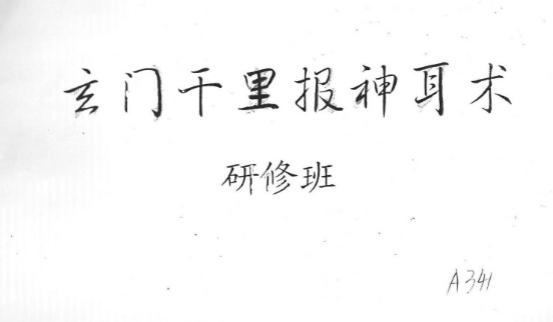 玄门千里报神耳术
研修班
A341